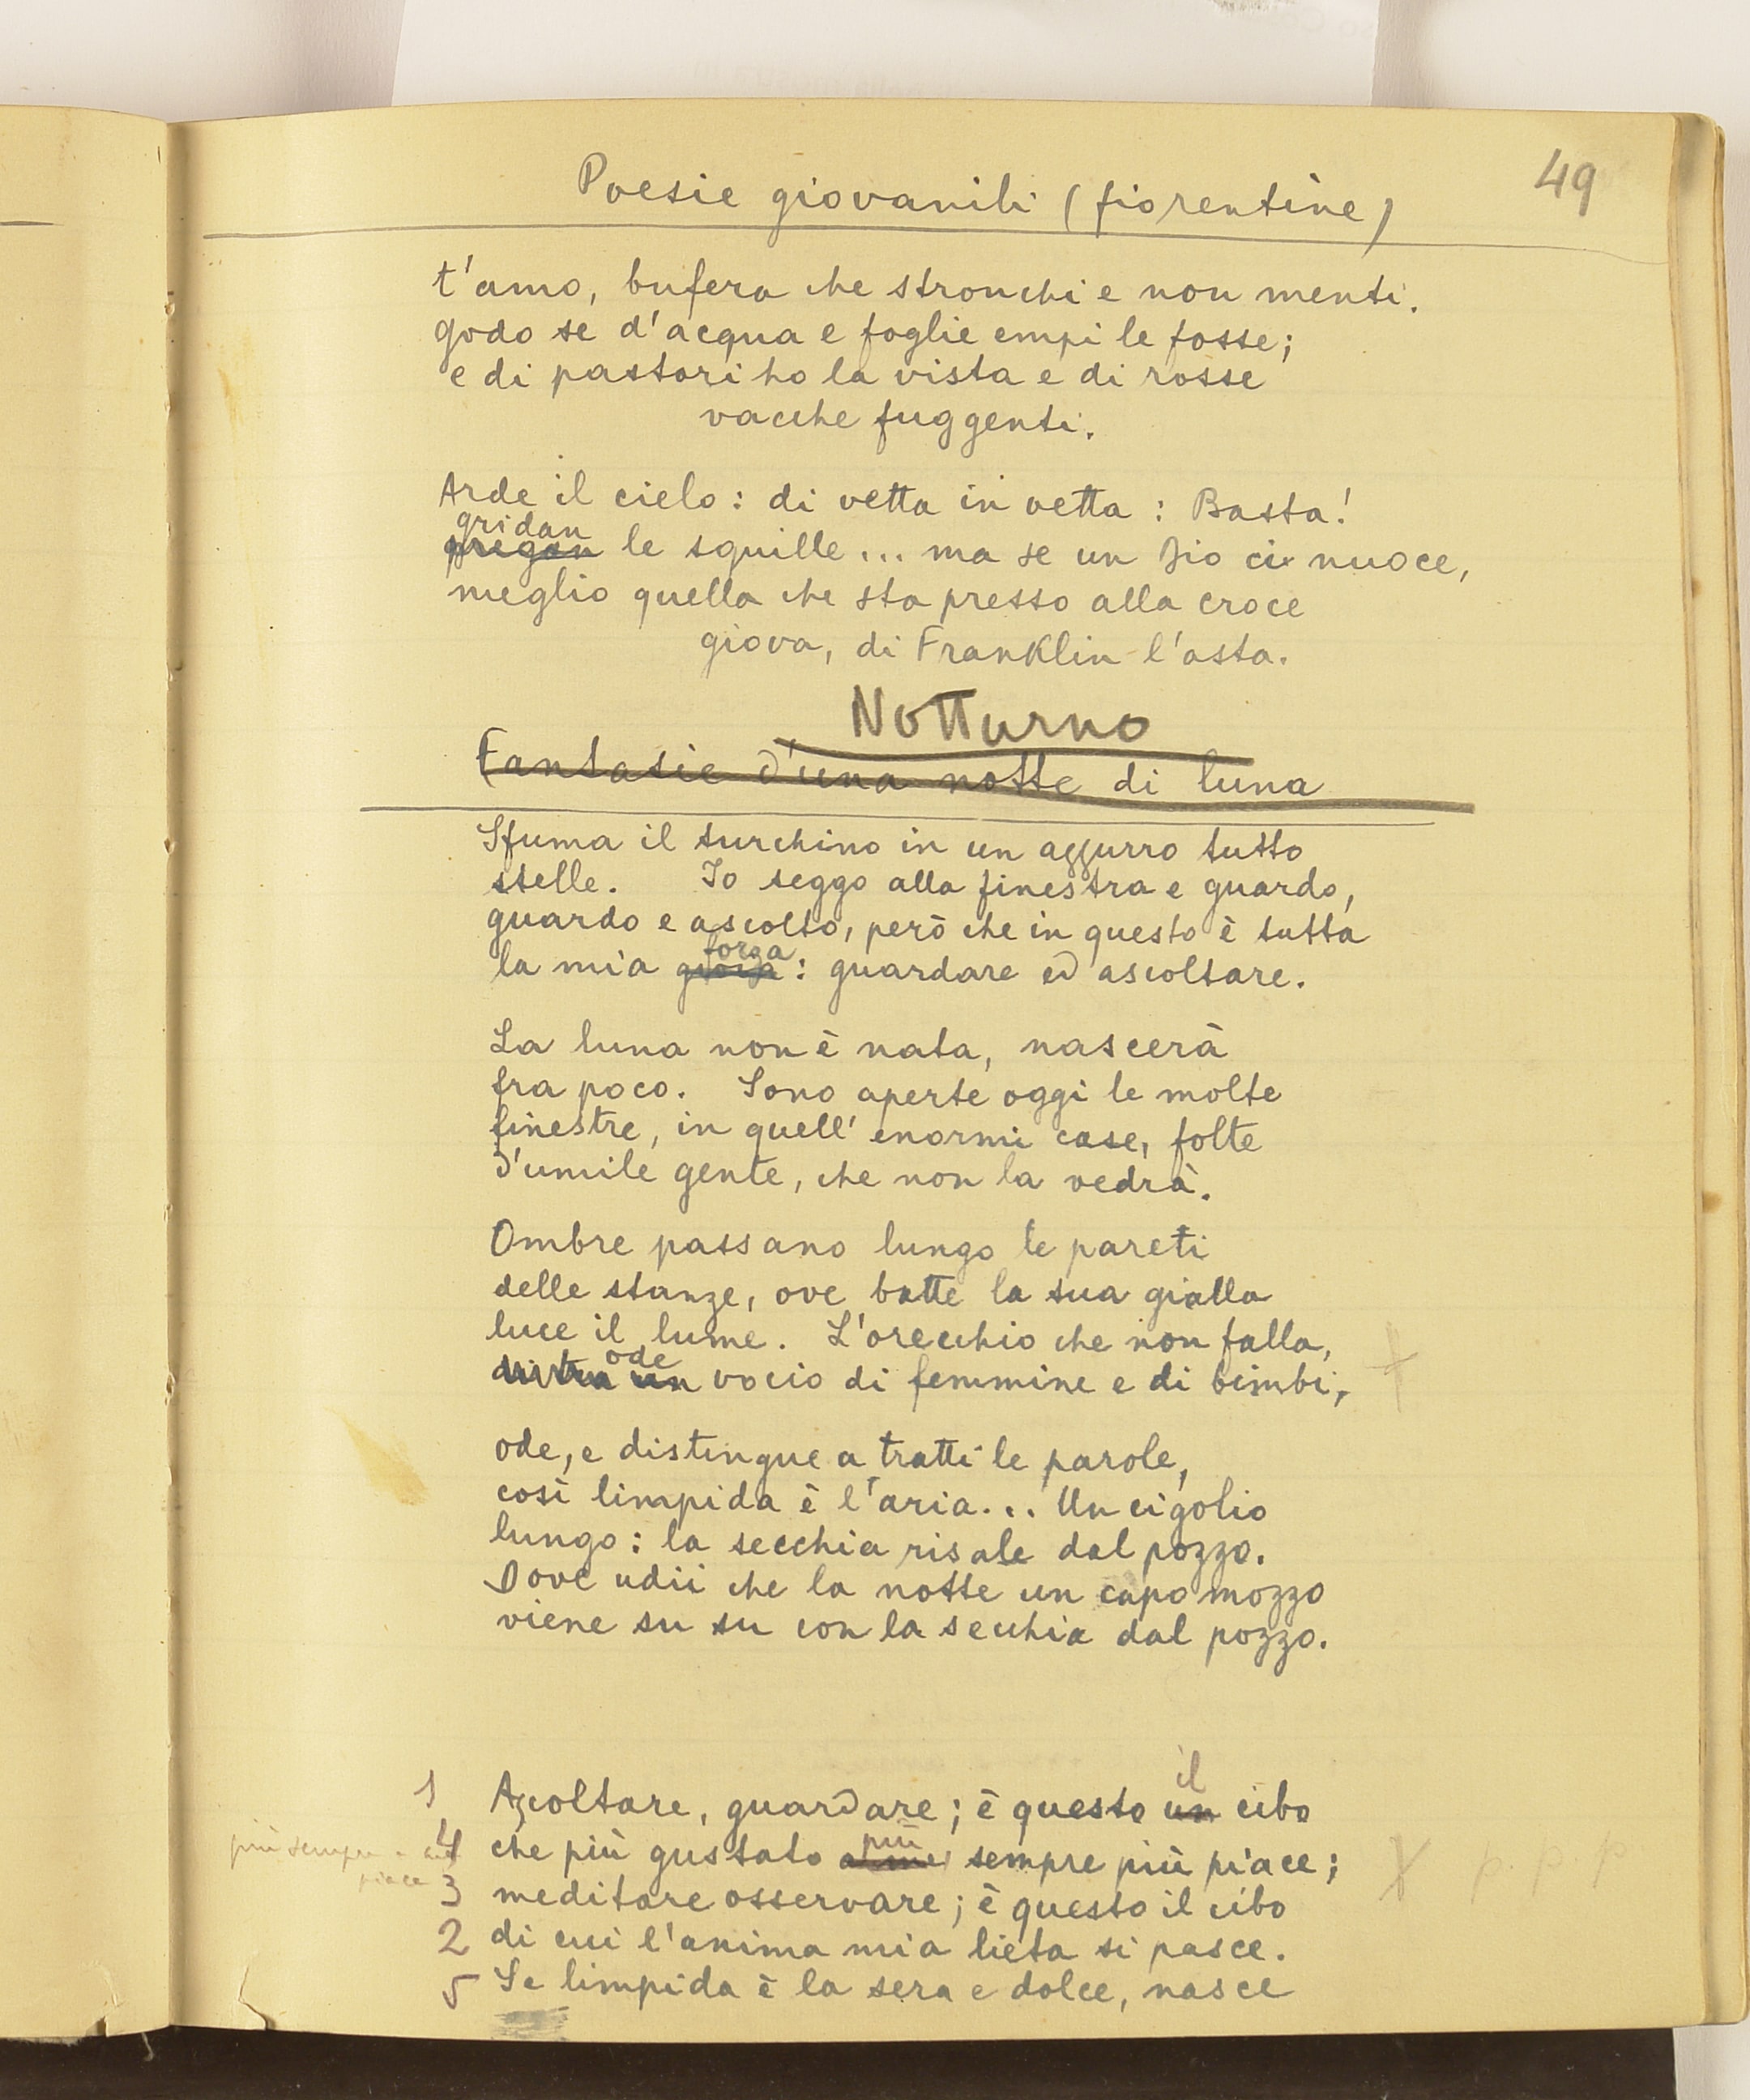 49
Poesie giovanili (fiorentine)
t'amo, bufera che stronchi e non menti.
godo se d'acqua e foglie empi le fosse;
e di pastori ho la vista e di rosse
vacche fuggenti.
Arde il cielo: di vetta in vetta: Basta!
gridan
pregan le squille... ma se un Dio ci nuoce,
meglio quella che sta presso alla croce
giova, di Franklin l'asta.
Notturno
Fantasie d'una notte di luna
Sfuma il turchino in un azzurro tutto
stelle. Io seggo alla finestra e guardo,
guardo e ascolto, però che in questo è tutta
forza
la mia gioia: guardare ed ascoltare.
La luna non è nata, nascerà
fra poco. Sono aperte oggi le molte
finestre, in quell' enormi case, folte
d'umile gente, che non la vedrà.
Ombre passano lungo le pareti
delle stanze, ove batte la sua gialla
luce il lume. L'orecchio che non falla,
ode
un vocio di femmine e di bimbi,
ode, e distingue a tratti le parole,
così limpida è l'aria... Un cigolio
lungo: la secchia risale dal pozzo.
Dove udii che la notte un capo mozzo
viene su su con la secchia dal pozzo.
il
1 Ascoltare, guardare; è questo un cibo
più
4 che più gustato sempre più piace;
più sempre
piace
3 meditare osservare; è questo il cibo
2 di cui l'anima mia lieta si pasce.
5 Se limpida è la sera e dolce, nasce
p. p. p